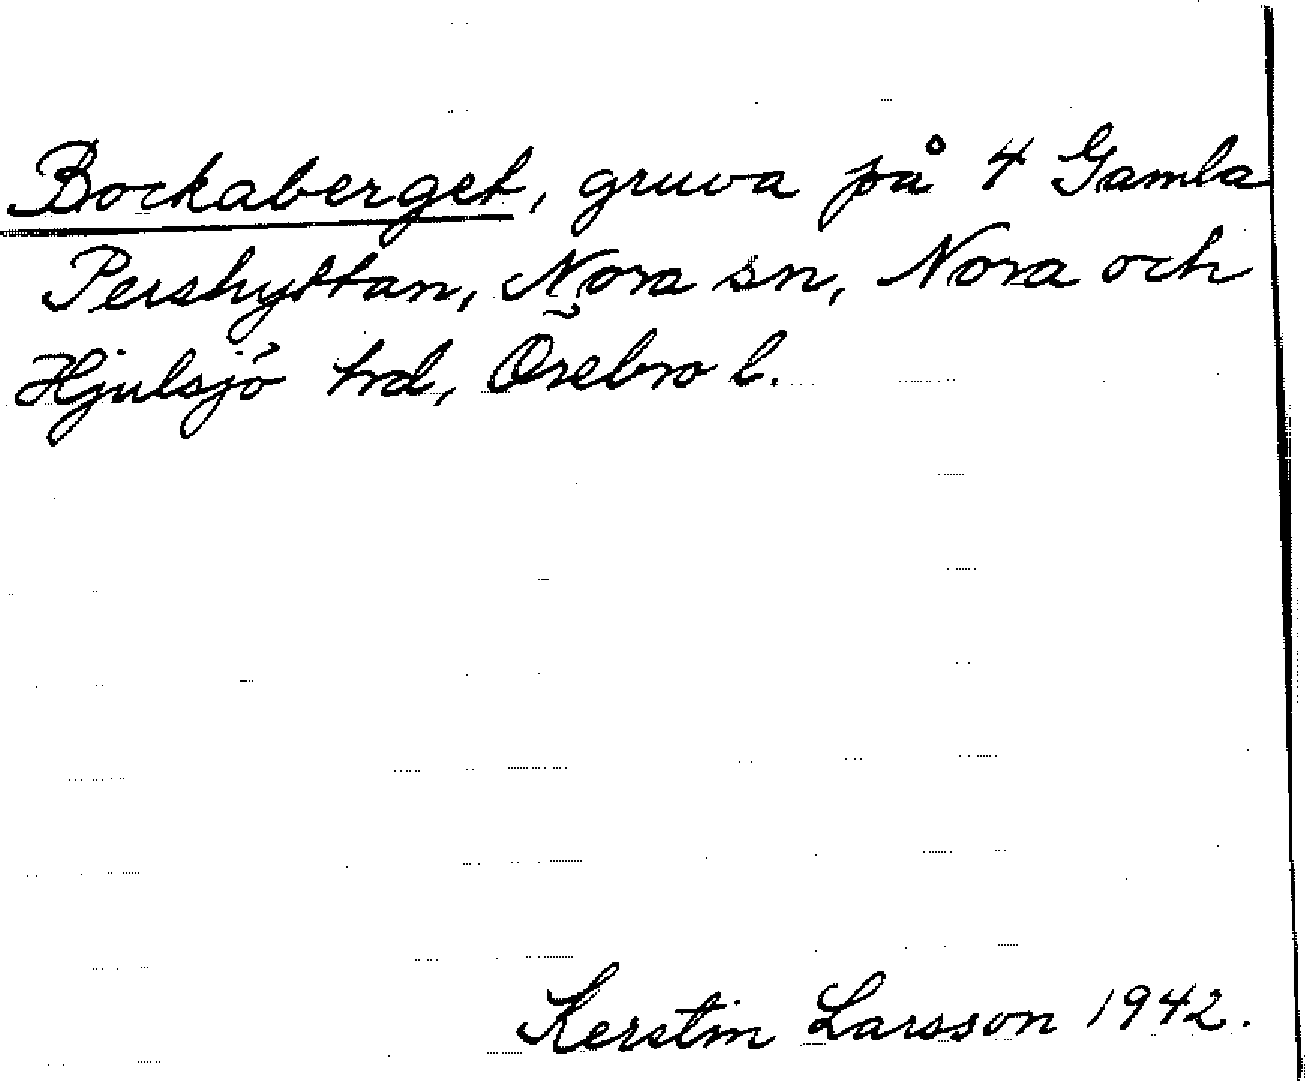 Bockaberget, gruva på 4 Gamla
Pershyttan, Nora sn, Nora och
Hjulsjö hrd, Örebro l.
Kerstin Larsson 1942.